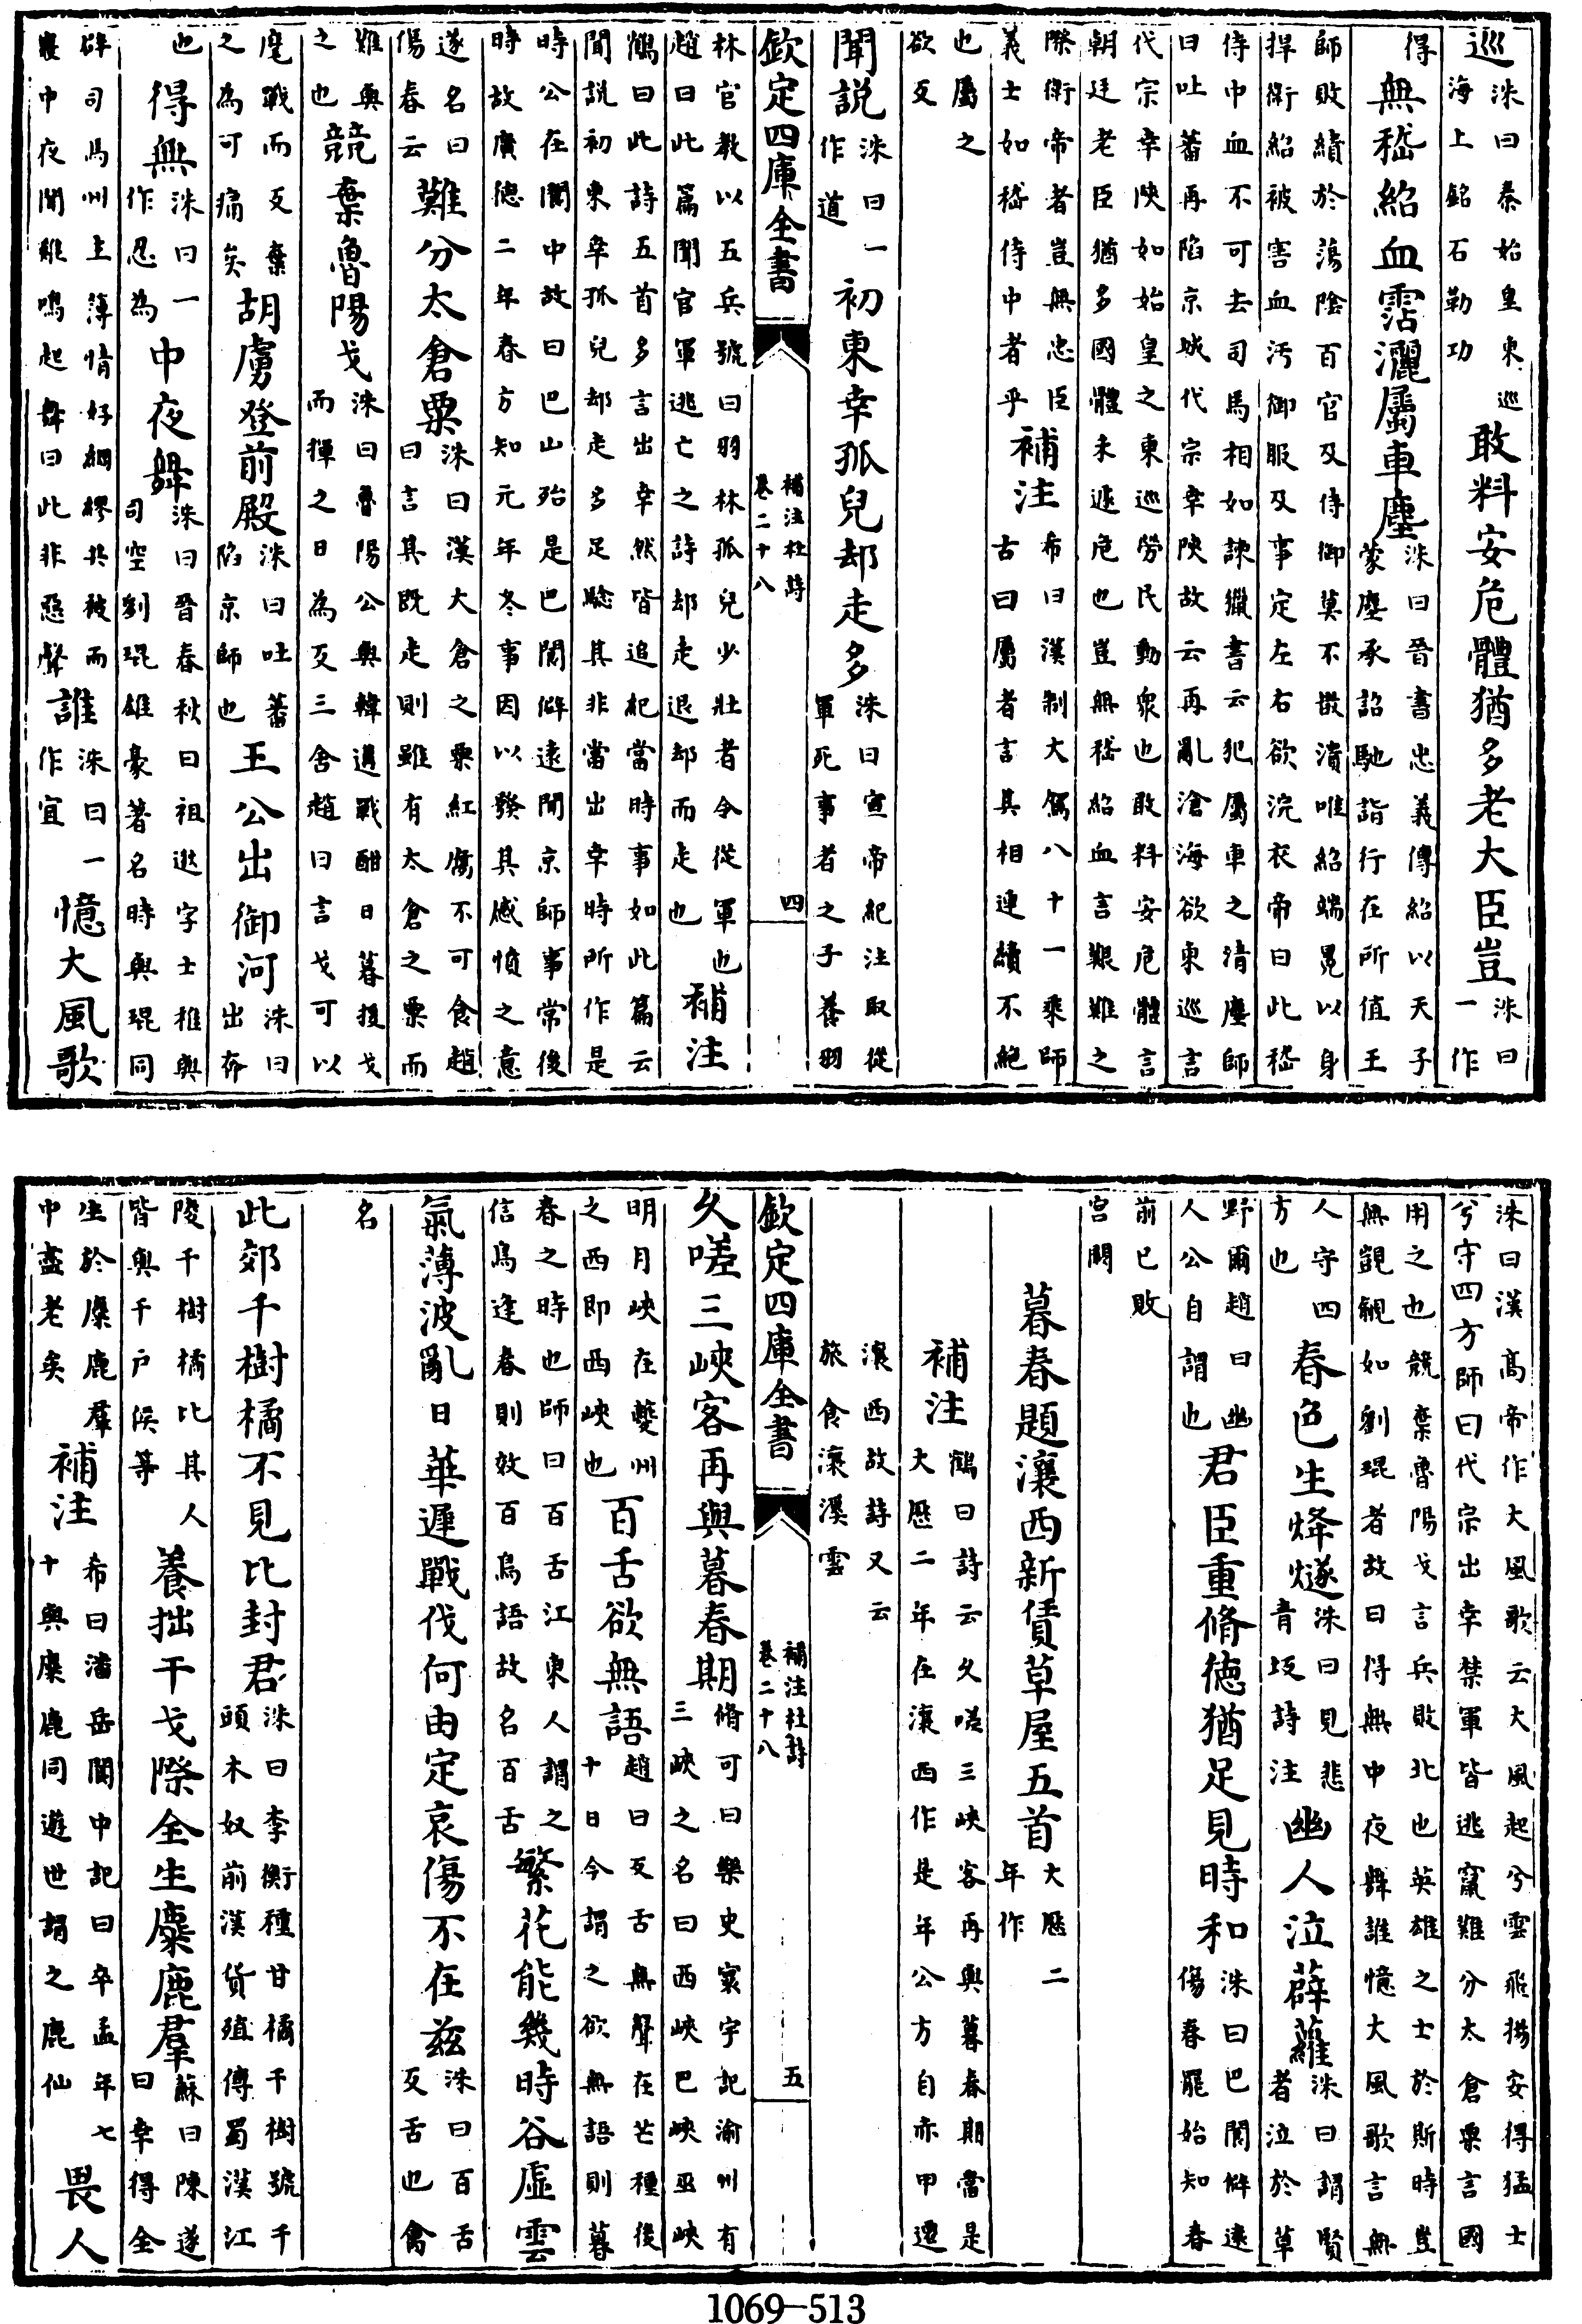 巡洙曰秦始皇東巡海上銘石勒功敢料安危體猶多老大臣豈洙曰一作
得無嵇紹血霑灑屬車塵洙曰晉書忠義傳紹以天子蒙塵承詔馳詣行在所值王
師敗績於蕩陰百官及侍御莫不散潰唯紹端冕以身捍衛紹被害血污御服及事定左右欲浣衣帝曰此嵇
侍中血不可去司馬相如諫獵書云犯屬車之清塵師曰吐蕃再陷京城代宗幸陝故云再亂滄海欲東巡言
代宗幸陝如始皇之東巡勞民動衆也敢料安危體言朝廷老臣猶多國體未遽危也豈無嵇紹血言艱難之
際衛帝者豈無忠臣義士如嵇侍中者乎補注希曰漢制大駕八十一乘師古曰屬者言其相連續不絶
也屬之欲反
聞說洙曰一作道初東幸孤兒却走多洙曰宣帝紀注取從軍死事者之子養羽
欽定四庫全書 補注杜詩 卷二十八 四
林官教以五兵號曰羽林孤兒少壯者令從軍也趙曰此篇聞官軍逃亡之詩却走退却而走也補注
鶴曰此詩五首多言出幸然皆追紀當時事如此篇云聞說初東幸孤兒却走多足騐其非當出幸時所作是
時公在閬中故曰巴山殆是巴閬僻遠聞京師事常後時故廣德二年春方知元年冬事因以發其感憤之意
遂名曰傷春云難分太倉粟洙曰漢大倉之粟紅腐不可食趙曰言其既走則雖有太倉之粟而
難與之也競棄魯陽戈洙曰魯陽公與韓遘戰酣日暮援戈而揮之日為反三舍趙曰言戈可以
麾戰而反棄之為可痛矣胡虜登前殿洙曰吐蕃陷京師也王公出御河洙曰出奔
也得無洙曰一作忍為中夜舞洙曰晉春秋曰祖逖字士稚與司空劉琨雄豪著名時與琨同
辟司馬州主簿情好綢繆共被而寢中夜聞雞鳴起舞曰此非惡聲誰洙曰一作宜憶大風歌
洙曰漢高帝作大風歌云大風起兮雲飛揚安得猛士兮守四方師曰代宗出幸禁軍皆逃竄難分太倉粟言國
用之也競棄魯陽戈言兵敗北也英雄之士於斯時豈無覬覦如劉琨者故曰得無中夜舞誰憶大風歌言無
人守四方也春色生烽燧洙曰見悲青坂詩注幽人泣薜蘿洙曰謂賢者泣於草
野爾趙曰幽人公自謂也君臣重脩德猶足見時和洙曰巴閬僻遠傷春罷始知春
前已敗宮闕
暮春題瀼西新賃草屋五首大厯二年作
補注鶴曰詩云久嗟三峽客再與暮春期當是大厯二年在瀼西作是年公方自赤甲遷
瀼西故詩又云旅食瀼溪雲
欽定四庫全書 補注杜詩 卷二十八 五
久嗟三峽客再與暮春期脩可曰樂史寰宇記渝州有三峽之名曰西峽巴峽巫峽
明月峽在夔州之西即西峽也百舌欲無語趙曰反舌無聲在芒種後十日今謂之欲無語則暮
春之時也師曰百舌江東人謂之信鳥逢春則效百鳥語故名百舌繁花能幾時谷虛雲
氣薄波亂日華遲戰伐何由定哀傷不在兹洙曰百舌反舌也禽
名
此郊千樹橘不見比封君洙曰李衡種甘橘千樹號千頭木奴前漢貨殖傳蜀漢江
陵千樹橘比其人皆與千户侯等養拙干戈際全生麋鹿羣蘇曰陳遂曰幸得全
生於麋鹿羣中盡老矣補注希曰潘岳關中記曰辛孟年七十與麋鹿同遊世謂之鹿仙畏人
1069—513